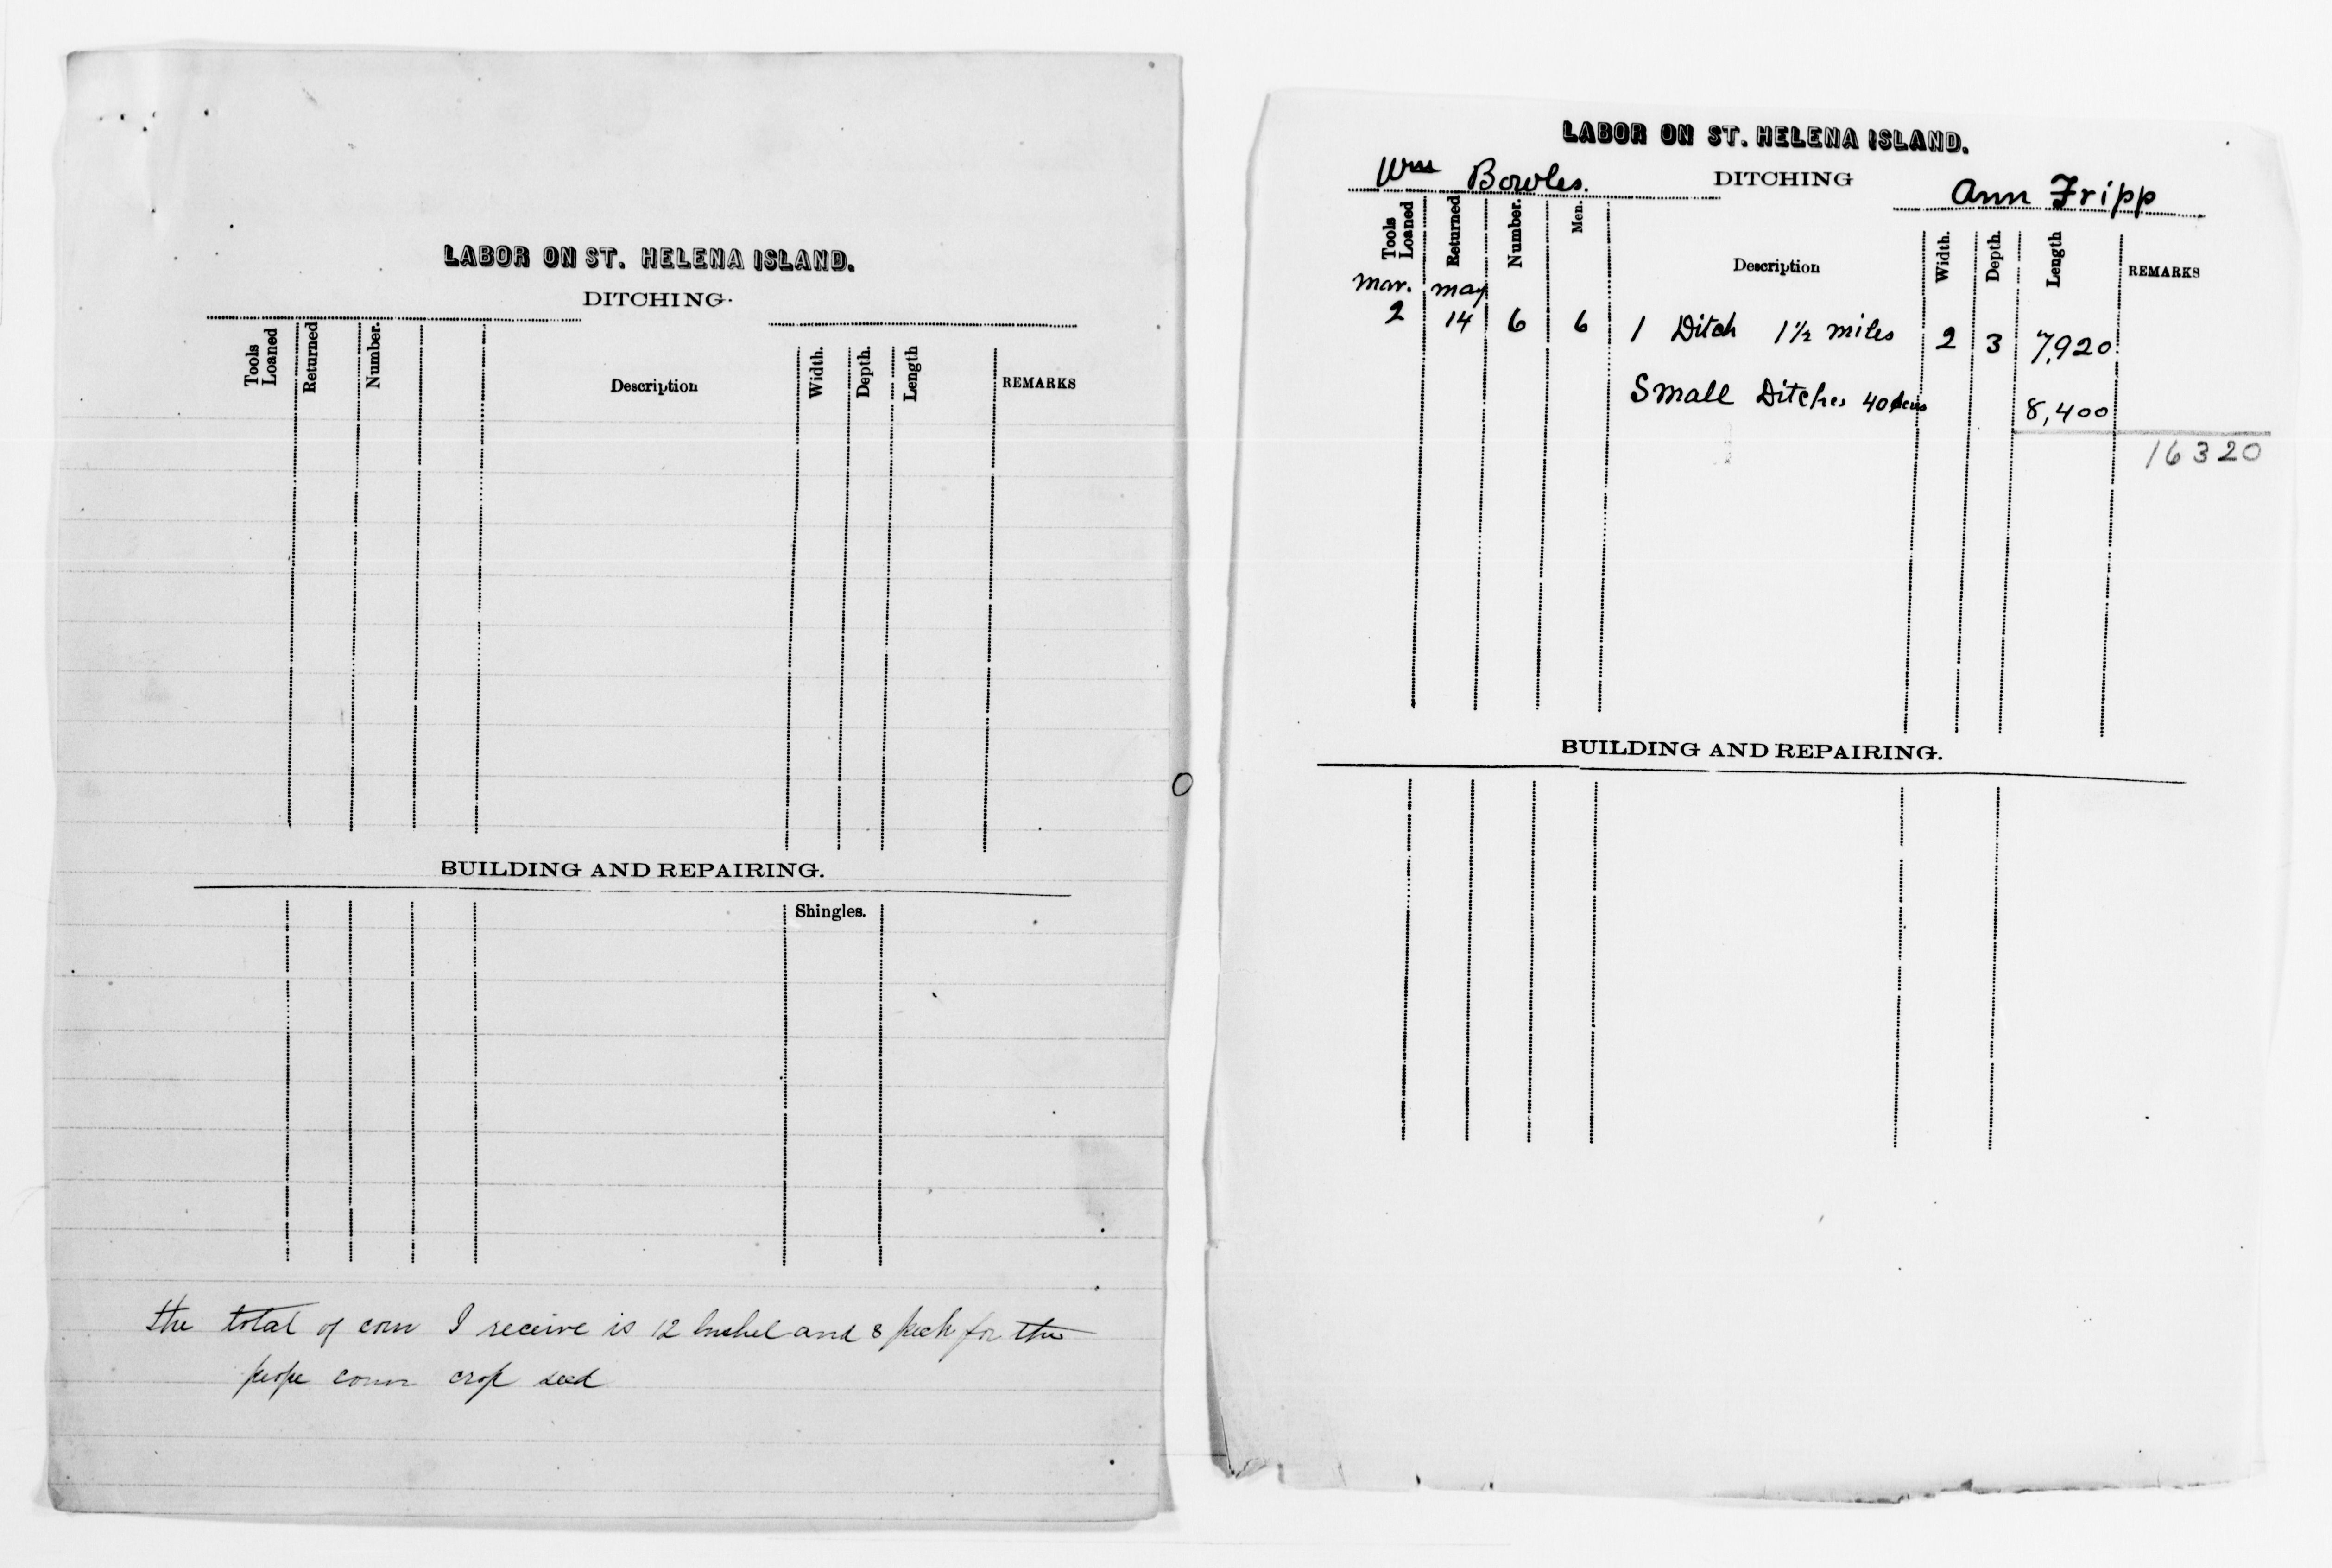 LABOR ON ST. HELENA ISLAND.
DITCHING.
Tools Loaned Returned Number. Description Width. Depth. Length REMARKS
BUILDING AND REPAIRING.
Shingles.
the total of corn I receive is 12 bushel and 8 peck for the
crop seed
LABOR ON ST. HELENA ISLAND.
Wm Bowles. DITCHING Ann Fripp
Tools Loaned Returned Number. Men. Description Width. Depth. Length REMARKS
Mar. May
2 14 6 6 1 Ditch 1½ miles 2 3 7,920
Small Ditches 40 8,400
16320
BUILDING AND REPAIRING.